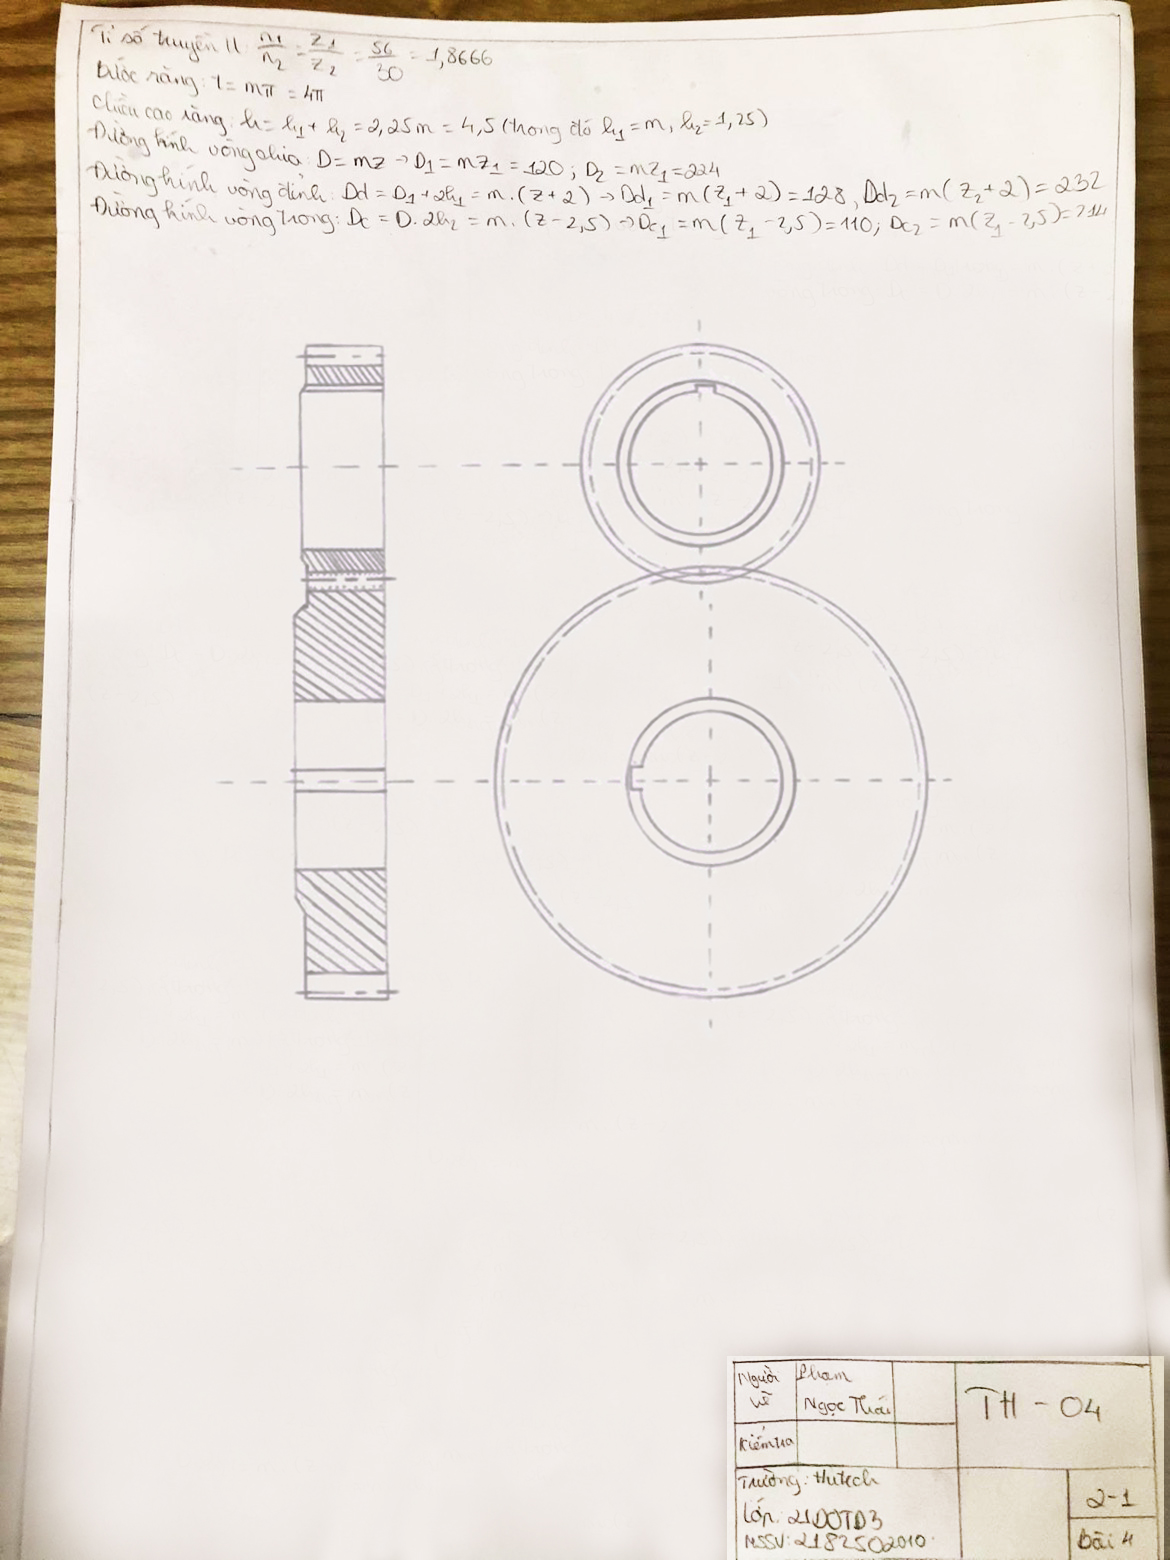 Tỉ số truyền U: n1/n2 = Z1/Z2 = 56/30 = 1,8666
Bước răng: t = mπ = 4π
Chiều cao răng: h = h1 + h2 = 2,25m = 4,5 (trong đó h1 = m, h2 = 1,25)
Đường kính vòng chia: D = mz → D1 = mZ1 = 120 ; D2 = mZ1 = 224
Đường kính vòng đỉnh: Dd = D1 + 2h1 = m.(z+2) → Dd1 = m(Z1+2) = 128, Dd2 = m(Z2+2) = 232
Đường kính vòng trong: Dc = D.2h2 = m.(z-2,5) → Dc1 = m(Z1-2,5) = 110; Dc2 = m(Z1-2,5) = 214
Người vẽ
Phạm Ngọc Thái
TH - 04
Kiểm tra
Trường: Hutech
Lớp: 21DOTD3
MSSV: 2182502010.
2-1
Bài 4